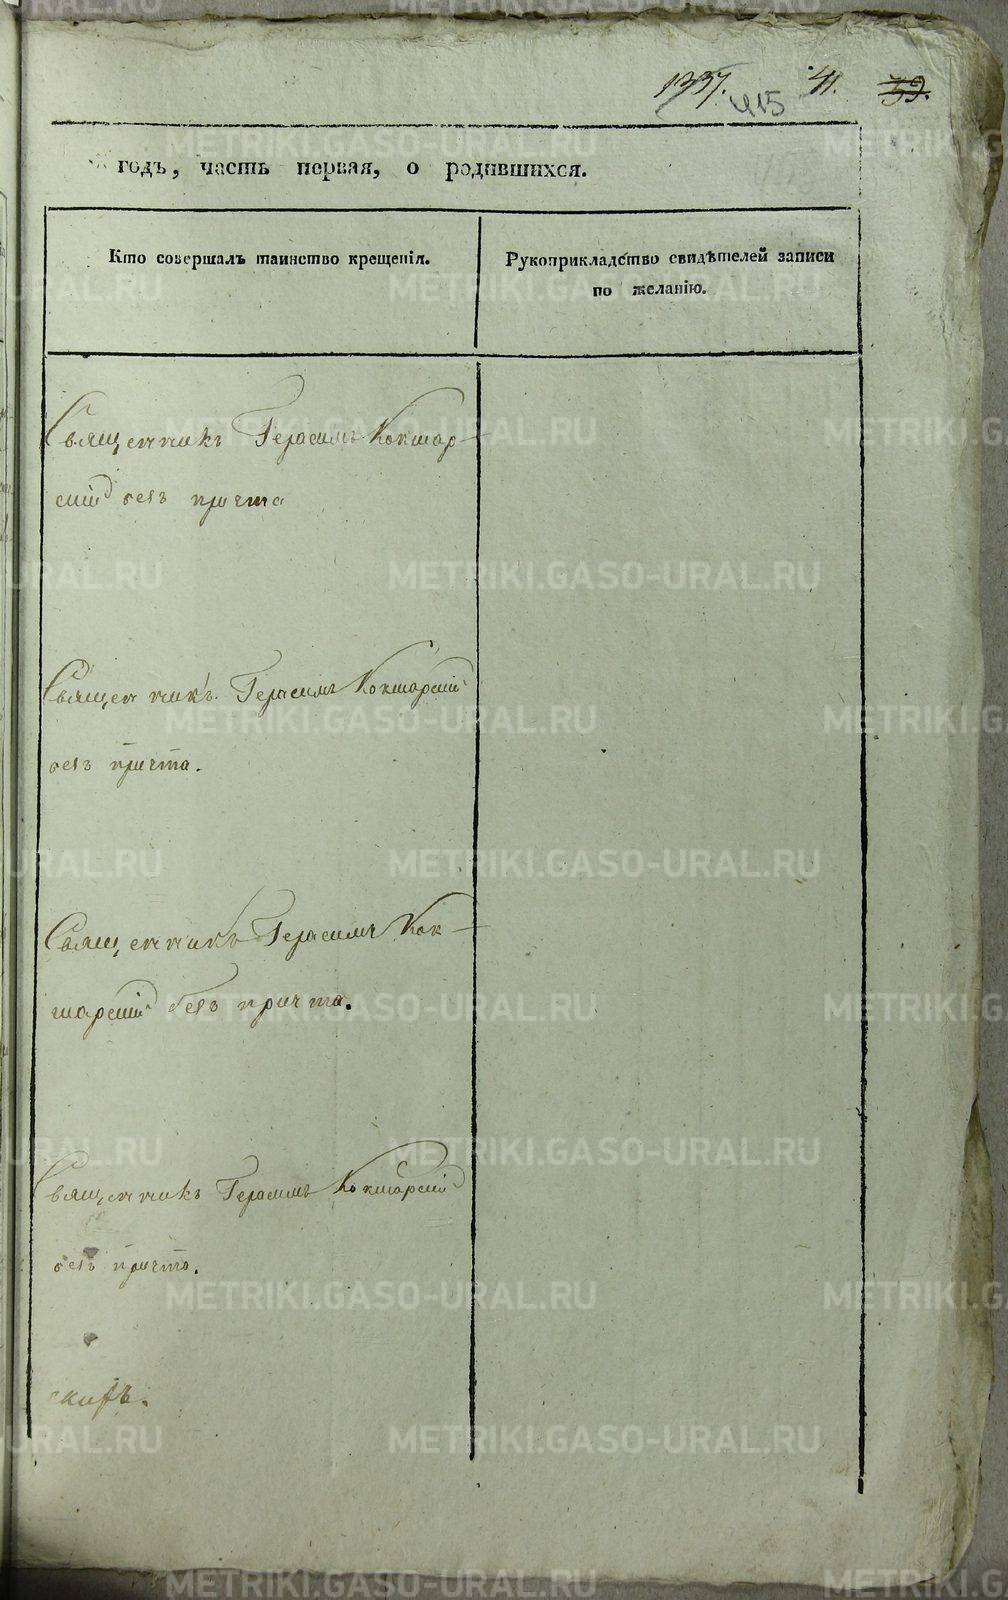 1337. 41. 39.
415
годъ, часть первая, о родившихся.
Кто совершалъ таинство крещенія.
Рукоприкладство свидѣтелей записи
по желанію.
Священникъ Герасимъ Кокшар-
скій безъ причта
Священникъ Герасимъ Кокшарскій
безъ причта.
Священникъ Герасимъ Кок-
шарскій безъ причта.
Священникъ Герасимъ Кокшарскій
безъ причта.
METRIKI.GASO-URAL.RU